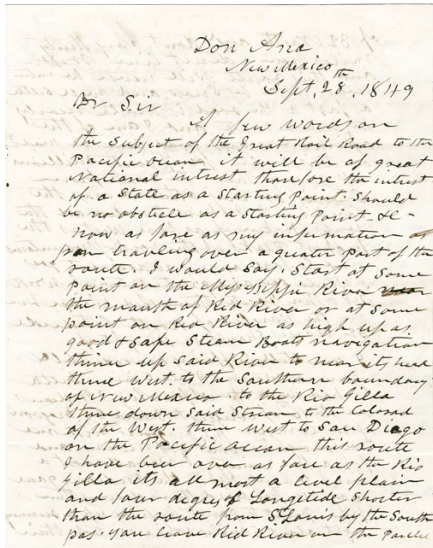 Don Ana
New Mexico
Sept, 28th, 1849
Dr Sir
A few words on
the Subject of the Great Rail Road to the
Pacific Ocean it will be of great
National intrest therefore the intrest
of a State as a Starting Point. Should
be no obsticle as a Starting Point &c-
now as fare as my information
traveling over a greater part of the
route. I would Say. Start at Some
Point on the Mississippi River
the mouth of Red River or at Some
point on Red River as high up as
good & Safe Steam Boats navigation
thence up Said River to near its head
thence West. to the Southern boundary
of New Mexico to the Rio Gilla
thence down Said Stream to the Colorad
of the West. then West to San Diago
on the Pacific ocean this route
I have been over as fare as the Rio
Gilla its all most a level plain
and four degres of Longetide Shorter
than the route from St Louis by the South
pas. you leave Red River on the